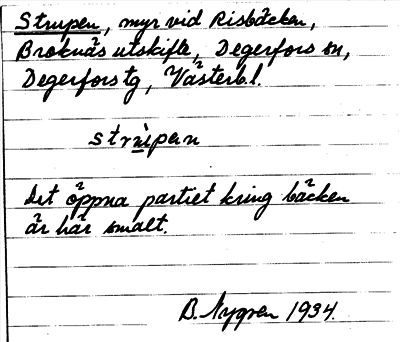 Strupen, myr vid Risbäcken,
Broknäs utskifte, Degerfors sn,
Degerfors tg, Västerb. l.
strùpen
Det öppna partiet kring bäcken
är här smalt.
B. Nygren 1934.